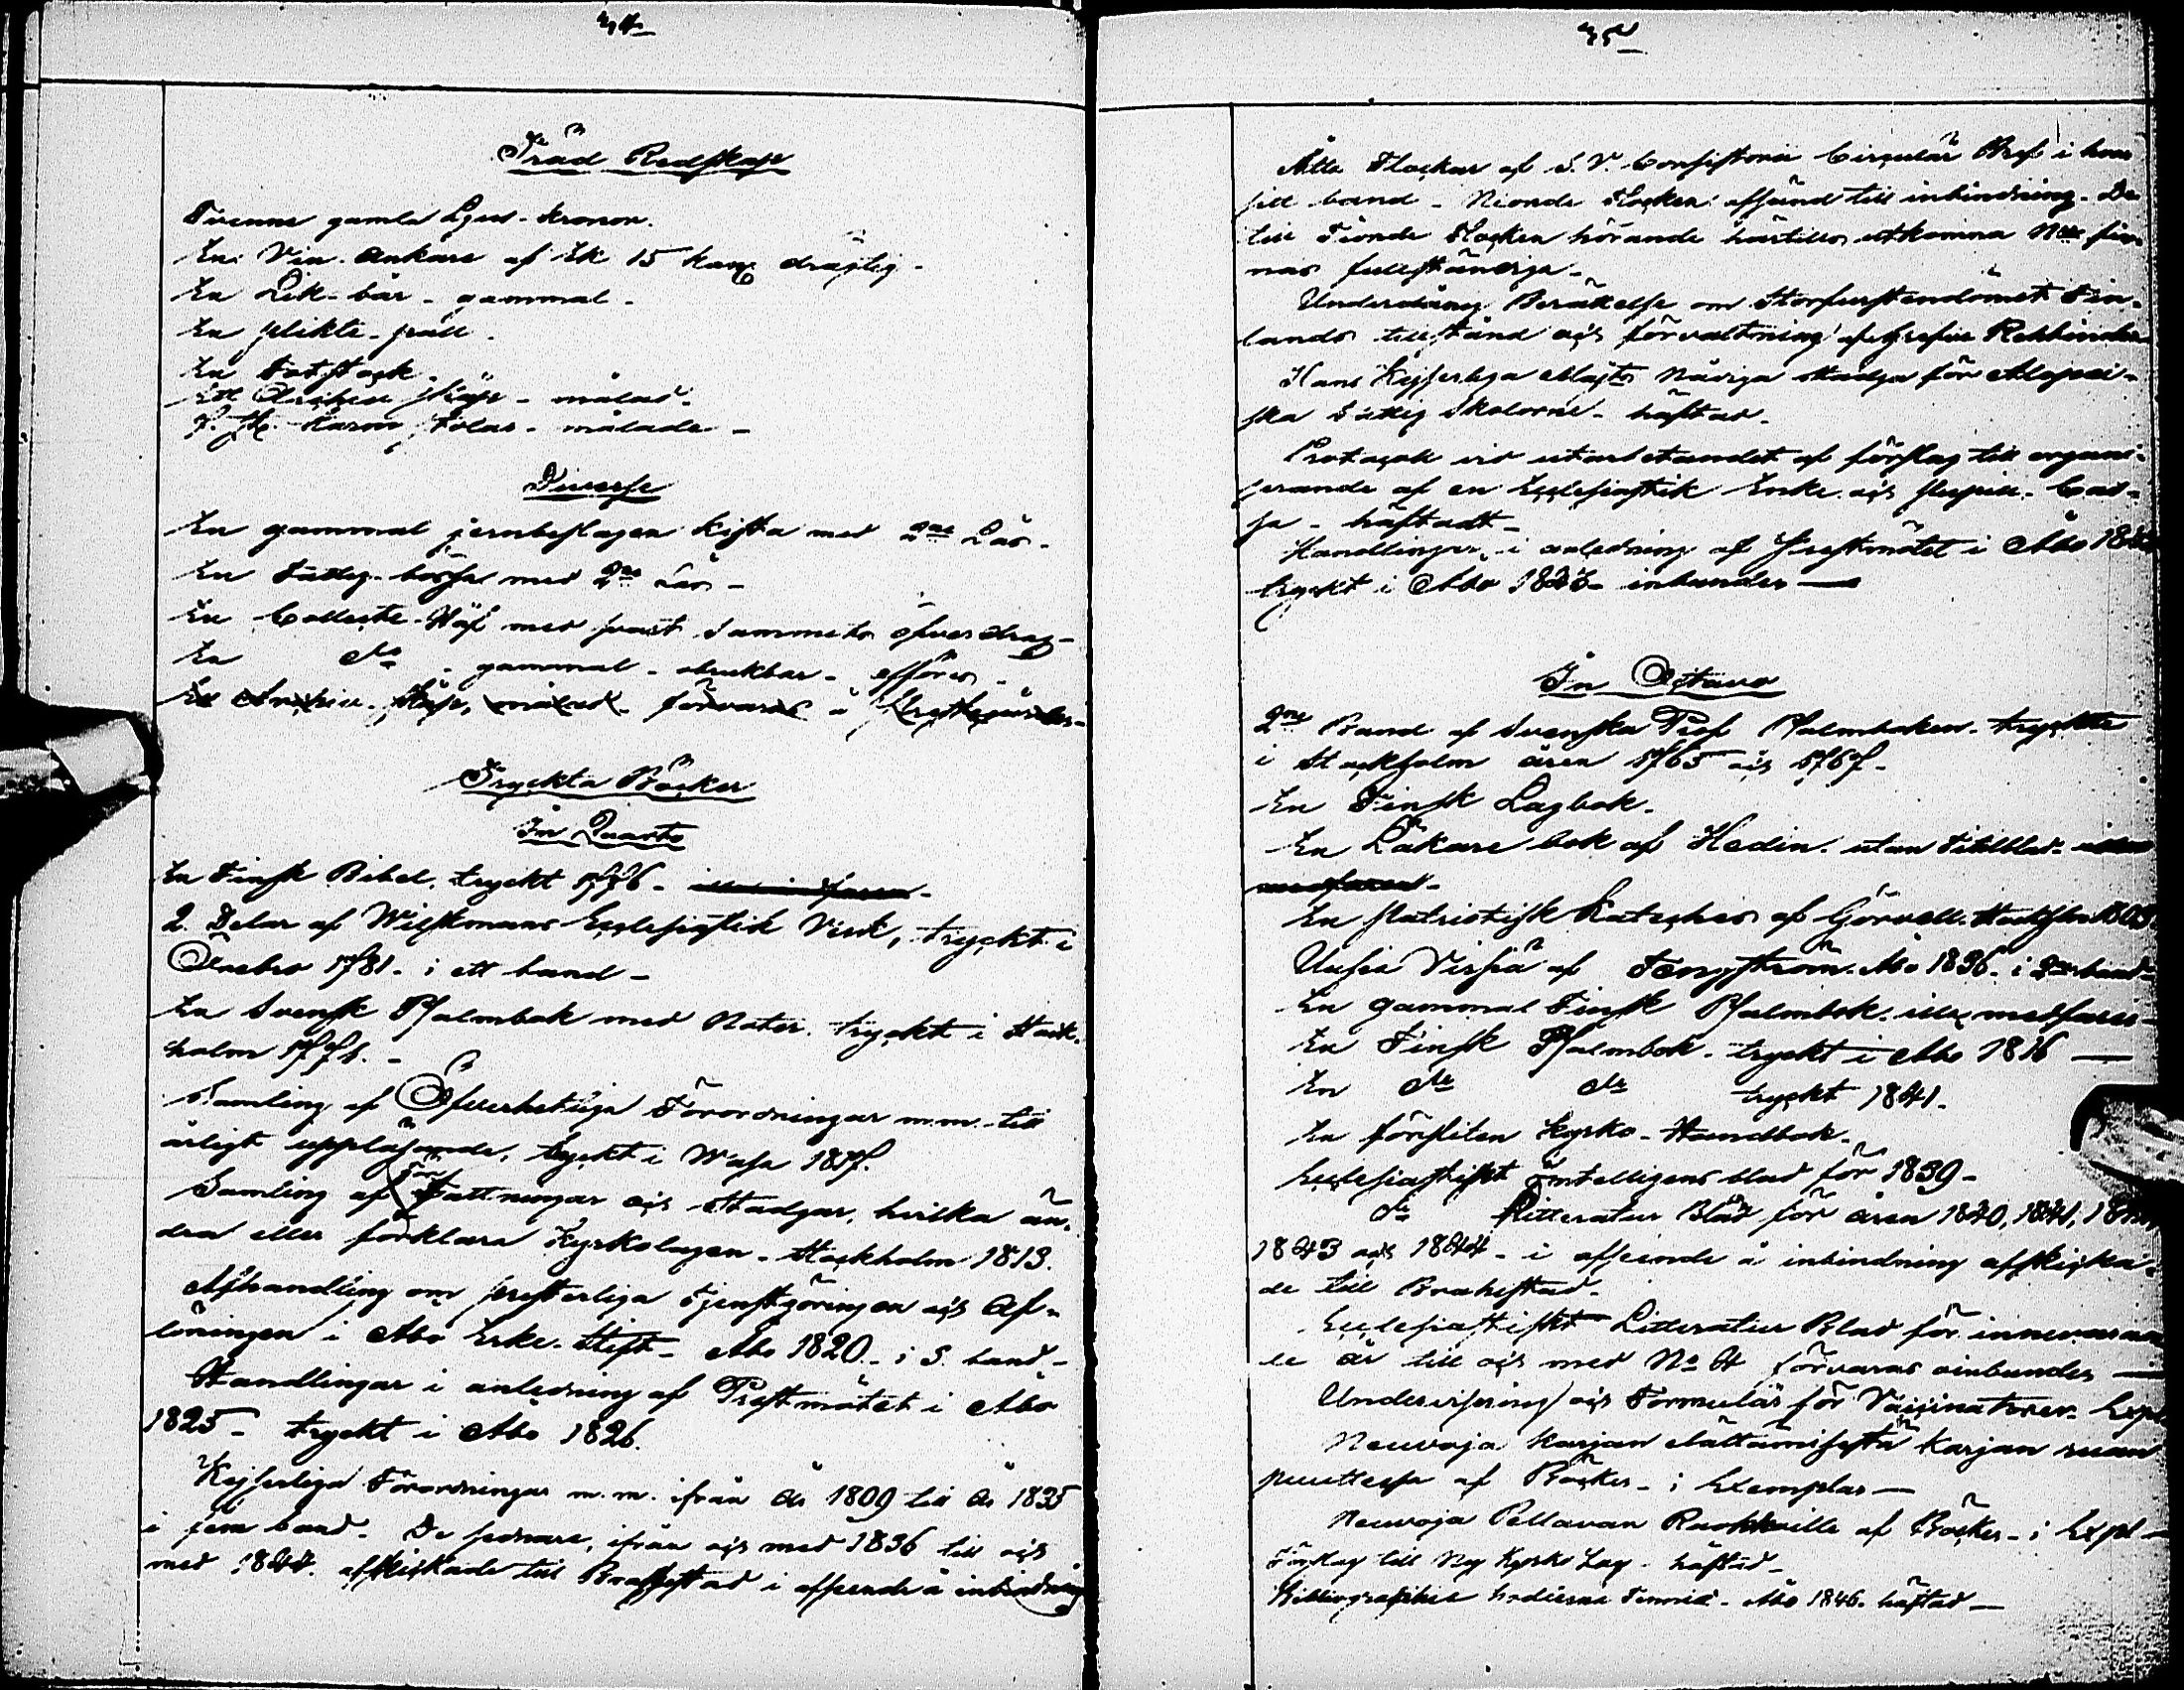 34
Träd Redskap
Tvenne gamla Ljus-kronor.
En Vin-Ankare af Ek 15 kan: drägtig.
En Lik-bår - gammal -
En plikte-pall.
En Fotstock.
Ett Archiv skåp - målad.
St. målade -
Diverse
En gammal jernbeslagen kista med 2ne Lås.
En Fattig-bössa med 2ne Lås -
En Collecte-Håf med svart Sammets öfverdrag -
En do - gammal - obrukbar - afföres -
Ett Archiv-skåp, målad förvaras i Prestegården -
Tryckta Böcker
In Quarto
En Finsk Bibel, tryckt 1776 -
2. Delar af Wilskmans Ecclesiastik Verk, tryckt i
Örebro 1781. i ett band -
En Svensk Psalmbok med Noter. tryckt i Stock-
holm
Samling af Öfverhetliga Förordningar m.m. till
årligt uppläsande, tryckt i Wasa 1817.
Samling af Författningar och Stadgar, hvilka än-
dra eller förklara Kyrkolagen - Stockholm 1813.
Afhandling om presterliga tjenstgöringen och Af-
löningen i Åbo Erke-Stift - Åbo 1820 - i S. band -
Handlingar i anledning af Prestmötet i Åbo
1825 - tryckt i Åbo 1826.
Kejserliga Förordningar m.m. ifrån år 1809 till år 1835
i fem band. De sednare, ifrån och med 1836 till och
med 1844. afskickade till Brahestad i afseende å inbindning
35
Åtta Flockar af S.V. Consistorii Circulär Bref i hvar
sitt band - Nionde Flocken afsänd till inbindning. De
till Tionde Flocken hörande härtills utkomna N:r fin-
nas fullständiga -
Underdånig Berättelse om Storfurstendömet Fin-
lands tillstånd och förvaltning af Grefve Rehbinder
Hans Kejserliga Majts Nådiga stadga för
ska Skolorne - häftad.
Protocoll vid utarbetandet af förslag till organi-
serande af en Ecclesiastik Enke och Pupill-Cas-
sa - häftadt -
Handlingar i anledning af Prestmötet i Åbo
tryckt i Åbo inbunden -
In Octavo
2ne Band af Svenska Prof Psalmboken - tryckte
i Stockholm åren 1765 och 1767 -
En Finsk Lagbok.
En Läkare bok af Hedin. utan Titelblad -
En Patriotisk Kateches af Görwell. Stockholm
Uusia Virsiä af Tengström. Åbo 1836. i 2ne band -
En gammal Finsk Psalmbok. illa medfaren -
En Finsk Psalmbok. tryckt i Åbo 1816 -
En do do tryckt 1841.
En försliten Kyrko-Handbok.
Ecclesiastiskt Intelligens blad för 1839 -
do Litteratur Blad för åren 1840, 1841,
1843 och 1844 - i afseende å inbindning afskicka-
de till Brahestad.
Ecclesiastiskt Litteratur Blad för innevaran
de år till och med No 4 förvaras oinbunden -
Undervisning och Formulär för Vaccinatörer. Expl
Neuvoja karjan elättämisestä karjan ruan
puuttessa af Böcker - i Exemplar -
Neuvoja Pellavan Ruokkoille af Böcker - i Expl -
Förslag till Ny Kyrko Lag - häftad -
Åbo 1846. häftad -